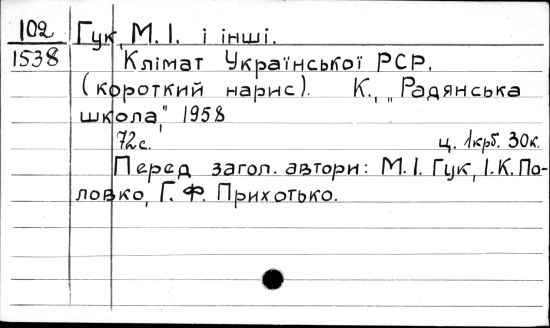 102
1538
Гук, М. І. і інші.
Клімат Української РСР.
(короткий нарис). К., „Радянська
школа," 1958
72с. ц. 1крб. 30к.
Перед загол. автори: М. І. Гук, І. К. По-
ловко, Г. Ф. Прихотько.